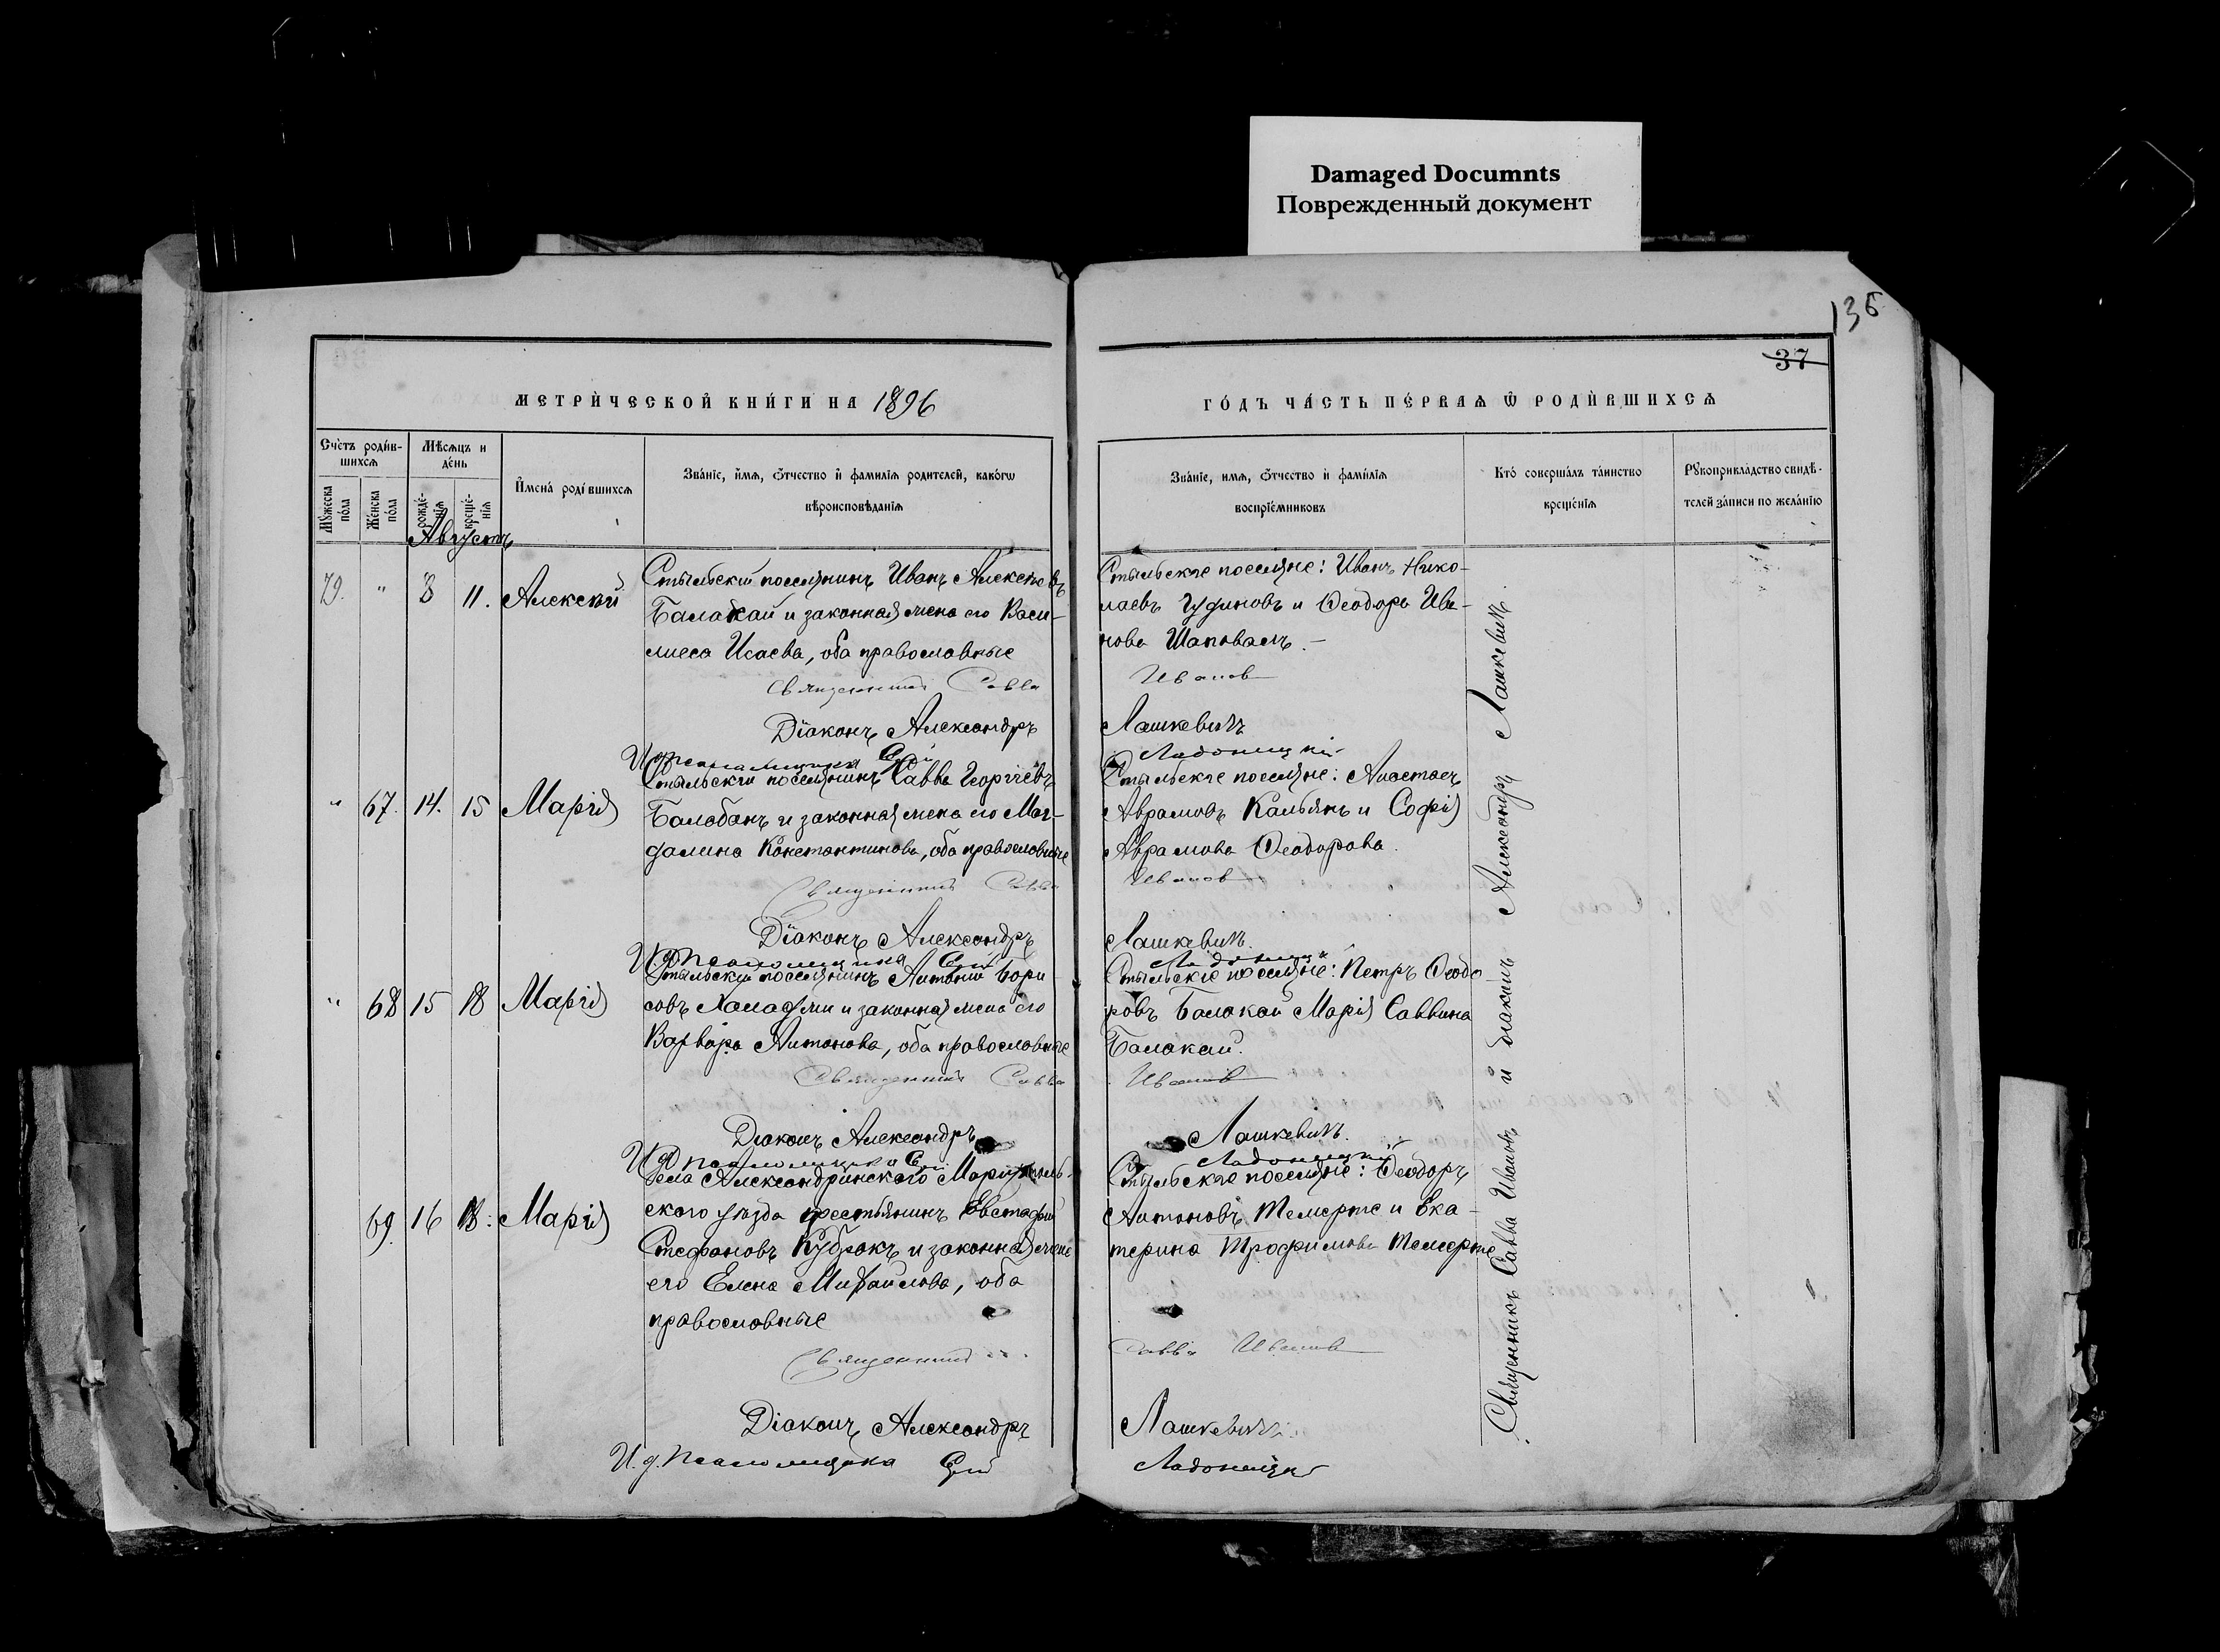 Damaged Documnts
Поврежденный документ
136
37
МЕТРИ́ЧЕСКОЙ КНИ́ГИ НА 1896
ГО́ДЪ ЧА́СТЬ ПЕ́РВАѦ Ѡ҆ РОДИ́ВШИХСѦ
Сче́тъ роди́в-
шихсѧ
Мѣ́сѧцъ и
де́нь
Мꙋ́жеска
по́ла
Же́нска
по́ла
рожде́-
нїѧ
креще́-
нїѧ
И҆мена́ роди́вшихсѧ
Зва́нїе, и҆́мѧ, ѻ҆́тчество и҆ фами́лїѧ роди́телей, како́гѡ
вѣроисповѣ́данїѧ
Зва́нїе, имѧ, ѻ҆́тчество и҆ фами́лїѧ
воспрїе́мниковъ
Кто́ соверша́лъ та́инство
креще́нїѧ
Рꙋкоприкла́дство свидѣ́-
телей за́писи по жела́нїю
Августъ
79. " 8 11. Алексѣй
Стыльскій поселянинъ Иванъ Алексѣевъ
Балакай и законная жена его Васи-
лиса Исаева, оба православные
Священникъ Савва
Діаконъ Александръ
И. д. псаломщика
Стыльскіе поселяне: Иванъ Нико-
лаевъ Чудиновъ и Ѳеодора Ива-
нова Шаповалъ. -
Иванов
Лашкевичъ
Ладоницкій
" 67. 14. 15 Марія
Стыльскій поселянинъ Савва Георгіевъ
Балабанъ и законная жена его Маг-
далина Константинова, оба православные
Священникъ Савва
Діаконъ Александръ
И. д. Псаломщика
Стыльскіе поселяне: Анастасъ
Аврамовъ Кальянъ и Софія
Аврамова Ѳеодорова.
Иванов
Лашкевичъ.
" 68 15 18 Марія
Стыльскій поселянинъ Антоній Бори
совъ и законная жена его
Варвара Антонова, оба православные
Священникъ Савва
Діаконъ Александръ
И. д. псаломщика
Стыльскіе поселяне: Петръ Ѳеодо
ровъ Балакай Марія Саввина
Балакай.
Иванов
Лашкевичъ.
Ладоницкій
69. 16 18. Марія
Села Александринскаго Маріуполь-
скаго уѣзда крестьянинъ Евстафій
Стефановъ Кубракъ и законная жена
его Елена Михайлова, оба
православные
Священникъ
Діаконъ Александръ
И. д. Псаломщика
Стыльскіе поселяне: Ѳеодоръ
Антоновъ Темерте и Ека-
терина Трофимова Темерте
Савва Иванов
Лашкевичъ.
Ладоницкій
Священникъ Савва Ивановъ и діаконъ Александръ Лашкевичъ.